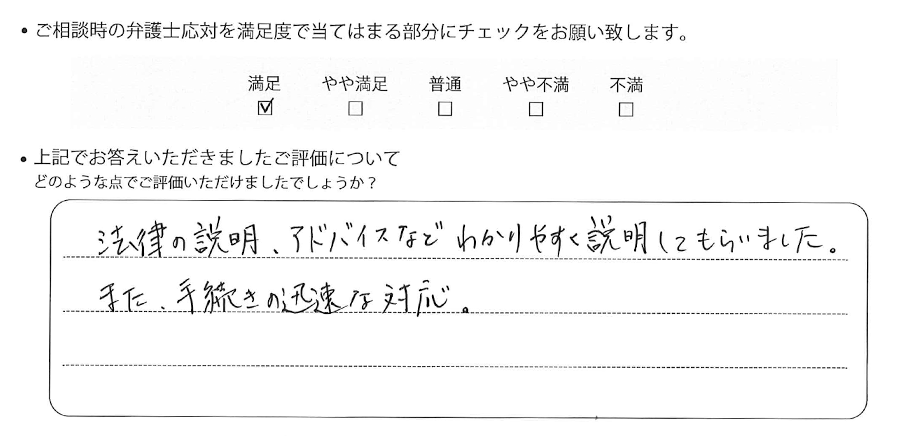 ・ご相談時の弁護士応対を満足度で当てはまる部分にチェックをお願い致します。
満足 やや満足 普通 やや不満 不満
☑ □ □ □ □
・上記でお答えいただきましたご評価について
どのような点でご評価いただけましたでしょうか？
法律の説明、アドバイスなどわかりやすく説明してもらいました。
また、手続きの迅速な対応。